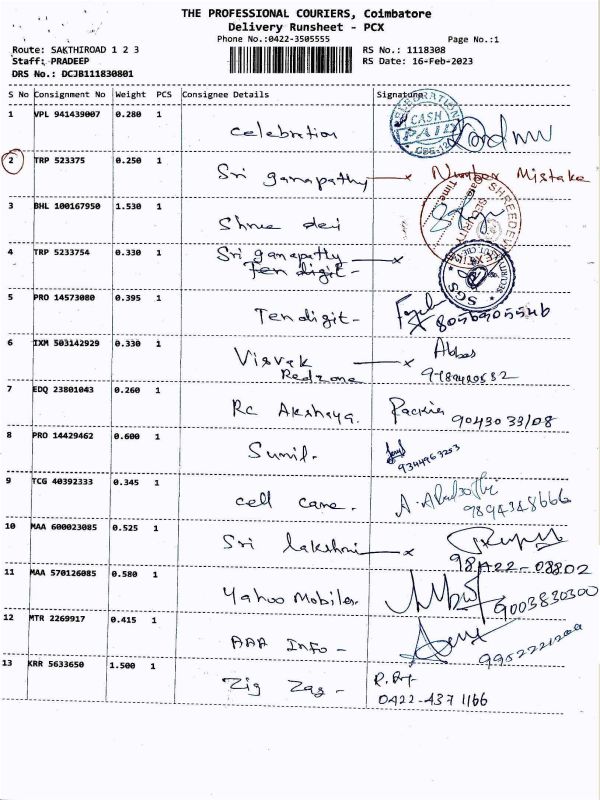 THE PROFESSIONAL COURIERS, Coimbatore
Delivery Runsheet - PCX
Phone No.:0422-3505555 Page No.:1
Route: SAKTHIROAD 1 2 3 RS No.: 1118308
Staff: PRADEEP RS Date: 16-Feb-2023
DRS No.: DCJB111830801
S No Consignment No Weight PCS Consignee Details Signature
1 VPL 941439007 0.280 1 celebration
CELEBRATION
CASH
PAID
2 TRP 523375 0.250 1 Sri ganapathy x Number Mistake
3 BHL 100167950 1.530 1 Shree dei
SECURITY
Date
Time
4 TRP 5233754 0.330 1 Sri ganapatty x
Ten digit-
SGS
5 PRO 14573080 0.395 1 Tendigit-
6 IXM 503142929 0.330 1 Visvak x Abbas
Redzone
7 EDQ 23801043 0.260 1 Rc Akshaya.
8 PRO 14429462 0.600 1 Sunil.
9344963203
9 TCG 40392333 0.345 1 cell cane.
9894348666
10 MAA 600023085 0.525 1 Sri lakshmi x
11 MAA 570126085 0.580 1 Yahoo Mobiles. 9003830300
12 MTR 2269917 0.415 1 AAA Info-
13 KRR 5633650 1.500 1 Zig Zag -
0422-437 1166